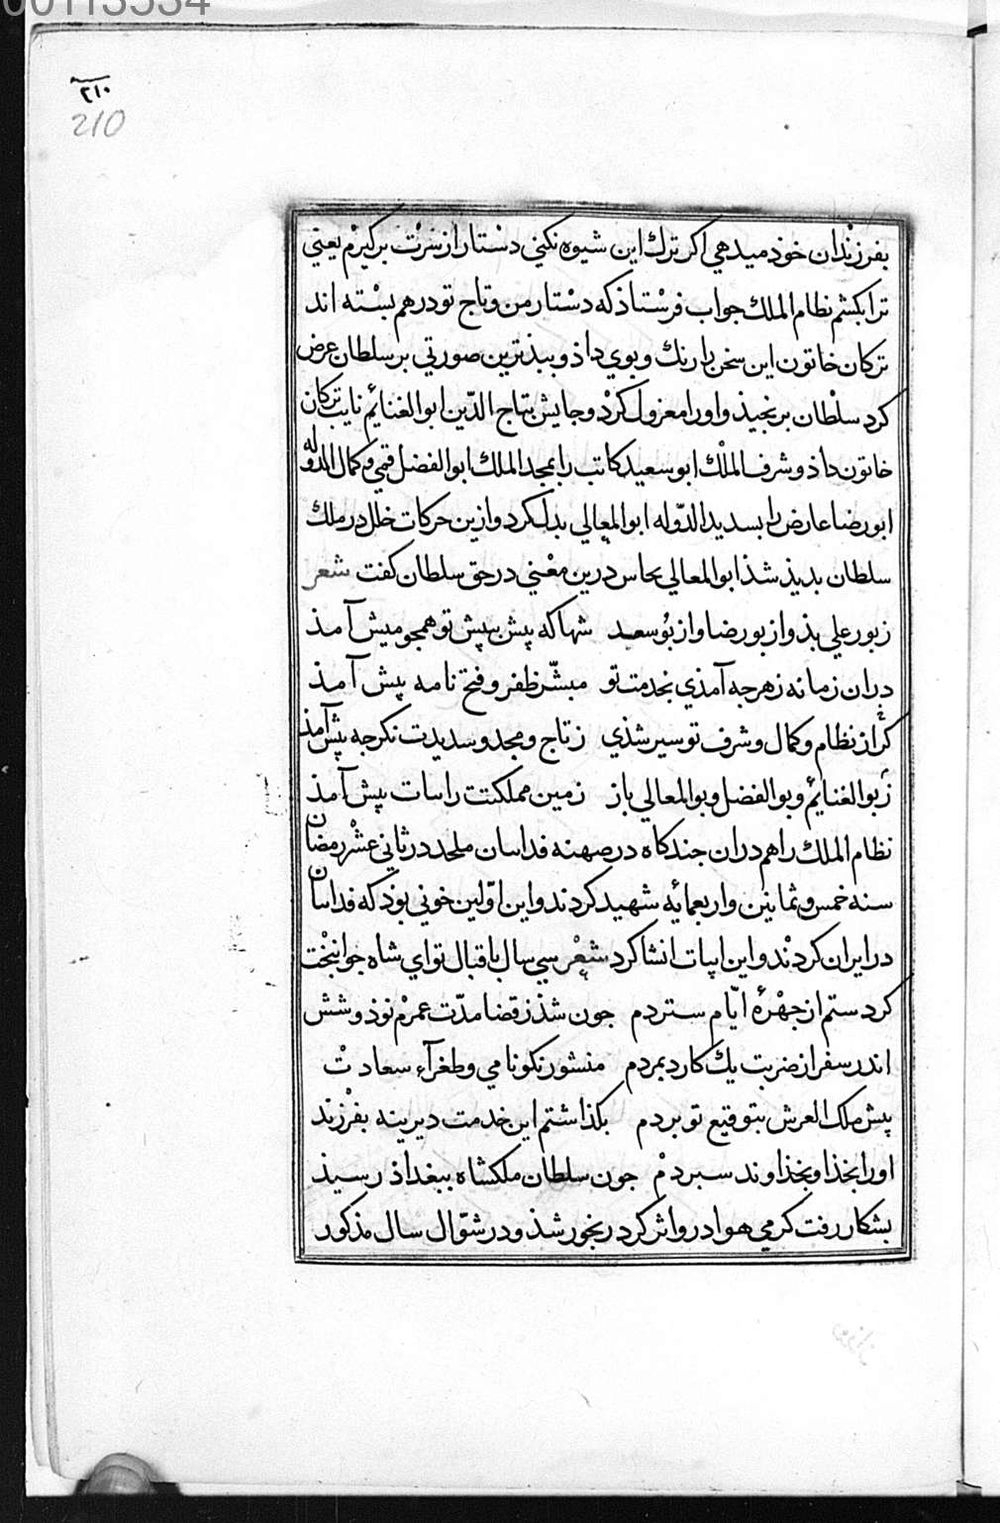 00113534
٢١٠
210
بفرزندان خوذ ميدهي اكر ترك اين شيوه نكني دستار از سرت بركيرم يعني
ترا بكشم نظام الملك جواب فرستاذ كه دستار من وتاج تو درهم بسته اند
تركان خاتون اين سخن را رنك وبوي داذ وببذترين صورتي بر سلطان عرض
كرد سلطان برنجيذ واورا معزول كرد وجايش بتاج الدّين ابوالغنائم نايب تركان
خاتون داذ وشرف الملك ابوسعيد كاتب را بمجد الملك ابوالفضل قمي وكمال الدوله
ابورضا عارض را بسديد الدّوله ابوالمعالي بدل كرد وازين حركات خلل در ملك
سلطان بديذ شذ ابوالمعالي نحاس درين معني در حق سلطان كفت شعر
زبور علي بذ واز بورضا واز بوسعد شها كه پيش تو همجو ميش آمذ
دران زمانه زهرجه آمذي بخدمت تو مبشّر ظفر وفتح نامه پيش آمذ
كر از نظام وكمال وشرف تو سير شذي زتاج ومجد وسديدت نكر جه پيش آمذ
زبوالغنايم وبوالفضل وبوالمعالي باز زمين مملكتت را سات پيش آمذ
نظام الملك را هم دران جندكاه در صهنه فداسان ملحد در ثاني عشر رمضان
سنه خمس وثمانين واربعمائه شهيد كردند واين اوّلين خوني بوذ كه فداسان
در ايران كردند واين ابيات انشا كرد شعر سي سال باقبال تو اي شاه جوانبخت
كرد ستم از جهره ايّام ستردم جون شذ زقضا مدّت عمرم نوذ وشش
اندر سفر از ضربت يك كارد بمردم منشور نكونامي وطغراء سعادت
پيش ملك العرش بتوقيع تو بردم بكذاشتم اين خدمت ديرينه بفرزند
اورا بخذا وبخذاوند سبردم جون سلطان ملكشاه ببغداذ رسيذ
بشكار رفت كرمي هوا درو اثر كرد رنجور شذ ودر شوّال سال مذكور